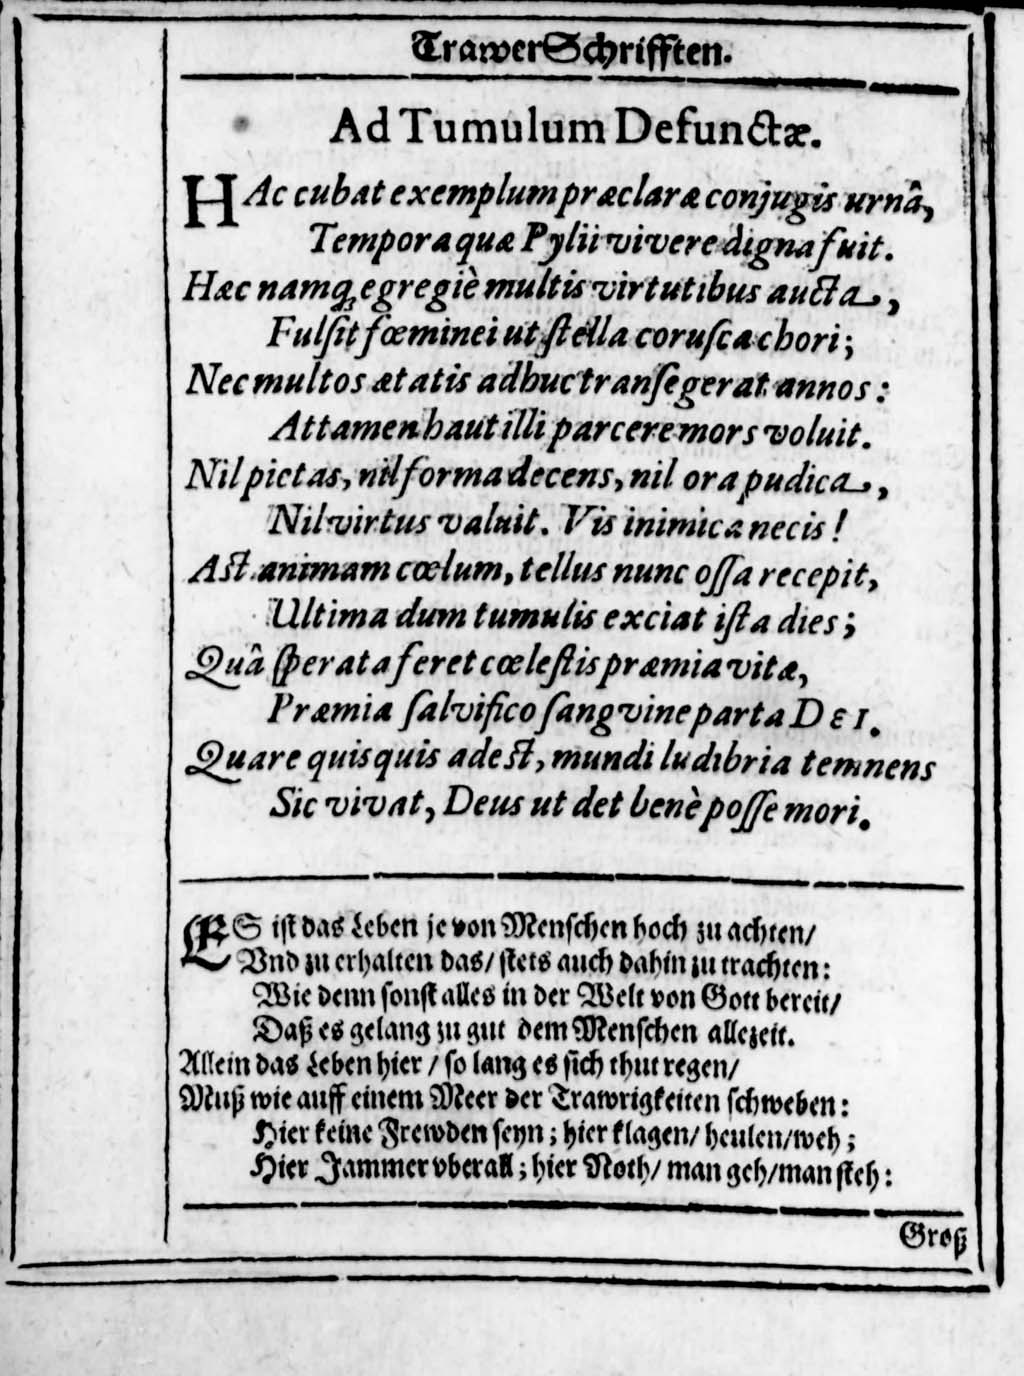 TrawerSchrifften.
Ad Tumulum Defunctæ.
HAc cubat exemplum præclaræ conjugis urnâ,
Tempora quæ Pylii vivere digna fuit.
Hæc namq; egregiè multis virtutibus aucta,
Fulſit fœminei ut ſtella coruſca chori;
Nec multos ætatis adhuc tranſegerat annos:
Attamen haut illi parcere mors voluit.
Nil pietas, nil forma decens, nil ora pudica,
Nil virtus valuit. Vis inimica necis!
Aſt animam cœlum, tellus nunc oſſa recepit,
Ultima dum tumulis exciat iſta dies;
Quâ ſperata feret cœleſtis præmia vitæ,
Præmia ſalvifico ſangvine parta DEI.
Quare quisquis adeſt, mundi ludibria temnens
Sic vivat, Deus ut det benè poſſe mori.
ES iſt das Leben je von Menſchen hoch zu achten/
Vnd zu erhalten das/ ſtets auch dahin zu trachten:
Wie denn ſonſt alles in der Welt von Gott bereit/
Daß es gelang zu gut dem Menſchen allezeit.
Allein das Leben hier / ſo lang es ſich thut regen/
Muß wie auff einem Meer der Trawrigkeiten ſchweben:
Hier keine Frewden ſeyn; hier klagen/ heulen/weh;
Hier Jammer vberall; hier Noth/ man geh/man ſteh:
Groß